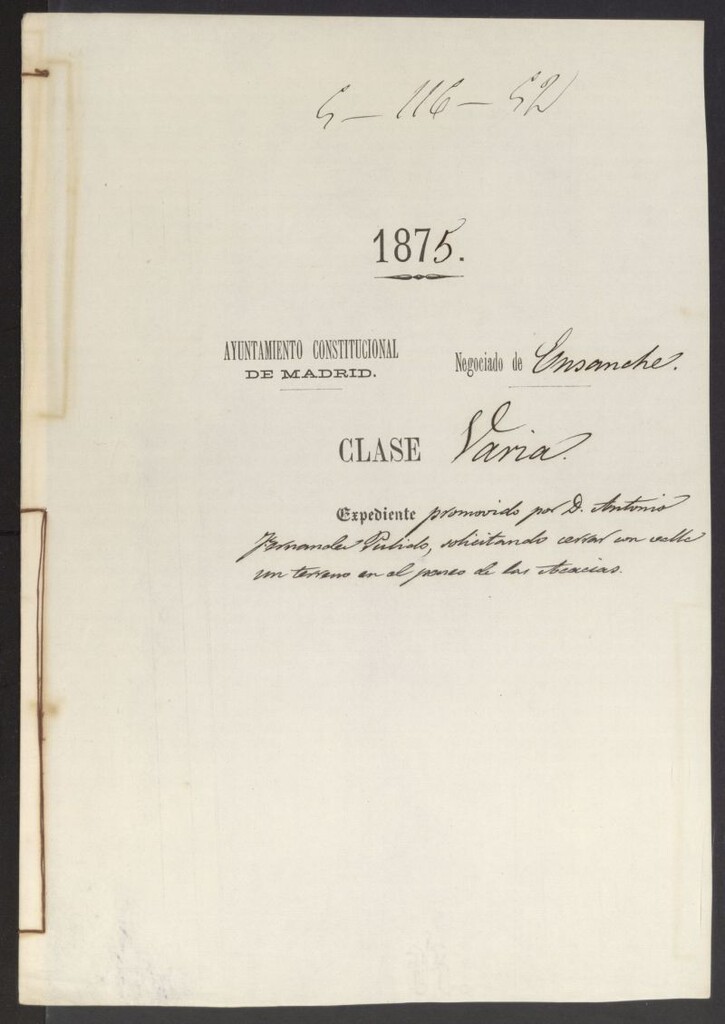 5 — 116 — 52
1875.
AYUNTAMIENTO CONSTITUCIONAL
DE MADRID.
Negociado de Ensanche.
CLASE Varia.
Expediente promovido por D. Antonio
Fernandez Pulido, solicitando cerrar con valla
un terreno en el paseo de las Acacias.